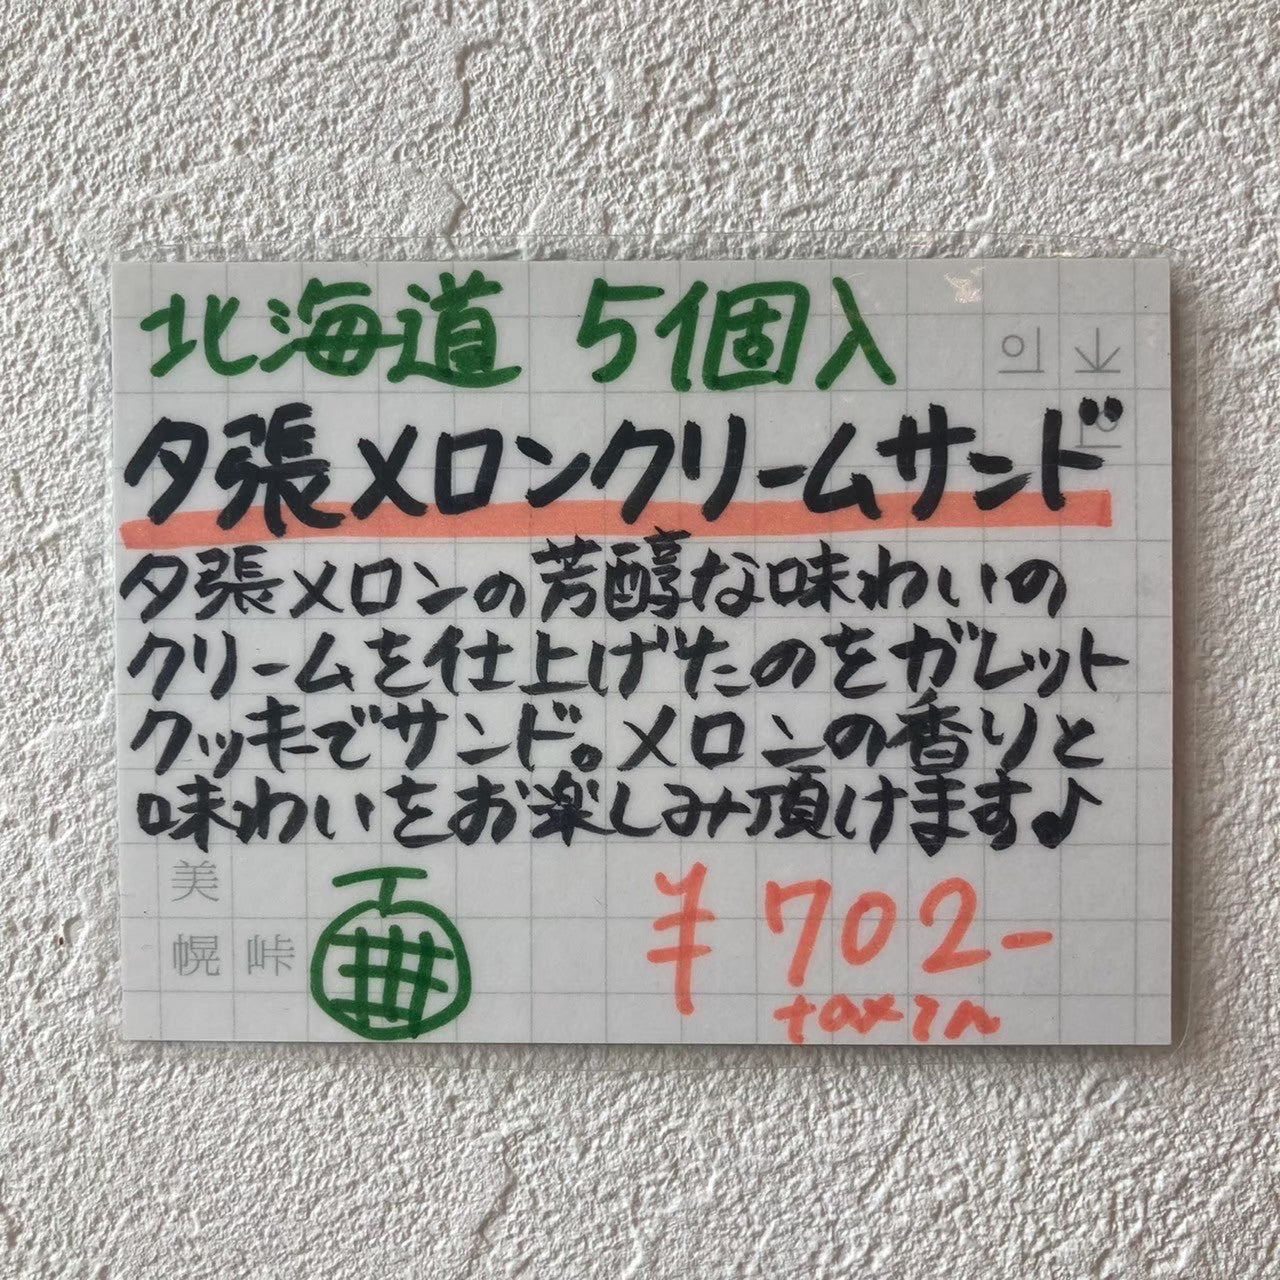 北海道 5個入
夕張メロンクリームサンド
夕張メロンの芳醇な味わいの
クリームを仕上げたのをガレット
クッキーでサンド。メロンの香りと
味わいをお楽しみ頂けます♪
美
幌 峠
¥702-
tax in